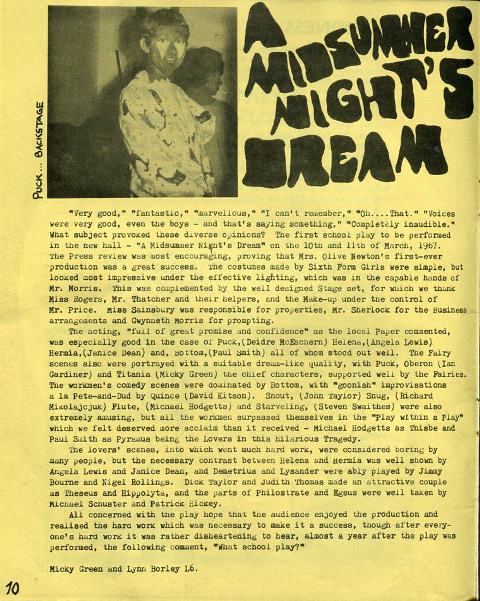 A
MIDSUMMER
NIGHT'S
DREAM
PUCK... BACKSTAGE
"Very good," "fantastic," "marvellous," "I can't remember," "Oh....That." "Voices
were very good, even the boys - and that's saying something," "Completely inaudible."
What subject provoked these diverse opinions? The first school play to be performed
in the new hall - "A Midsummer Night's Dream" on the 10th and 11th of March, 1967.
The Press review was most encouraging, proving that Mrs. Olive Newton's first-ever
production was a great success. The costumes made by Sixth Form Girls were simple, but
looked most impressive under the effective lighting, which was in the capable hands of
Mr. Morris. This was complemented by the well designed Stage set, for which we thank
Miss Rogers, Mr. Thatcher and their helpers, and the Make-up under the control of
Mr. Price. Miss Sainsbury was responsible for properties, Mr. Sherlock for the Business
arrangements and Gwynneth Morris for prompting.
The acting, "full of great promise and confidence" as the local Paper commented,
was especially good in the case of Puck,(Deidre McEachern) Helena,(Angela Lewis)
Hermia,(Janice Dean) and, Bottom,(Paul Smith) all of whom stood out well. The Fairy
scenes also were portrayed with a suitable dream-like quality, with Puck, Oberon (Ian
Gardiner) and Titania (Micky Green) the chief characters, supported well by the Fairies.
The workmen's comedy scenes were dominated by Bottom, with "goonish" improvisations
a la Pete-and-Dud by Quince (David Kitson). Snout, (John Taylor) Snug, (Richard
Mikolajcjuk) Flute, (Michael Hodgetts) and Starveling, (Steven Swaithes) were also
extremely amusing, but all the workmen surpassed themselves in the "Play within a Play"
which we felt deserved more acclaim than it received - Michael Hodgetts as Thisbe and
Paul Smith as Pyramus being the Lovers in this hilarious Tragedy.
The lovers' scenes, into which went much hard work, were considered boring by
many people, but the necessary contrast between Helena and Hermia was well shown by
Angela Lewis and Janice Dean, and Demetrius and Lysander were ably played by Jimmy
Bourne and Nigel Rollings. Dick Taylor and Judith Thomas made an attractive couple
as Theseus and Hippolyta, and the parts of Philostrate and Egeus were well taken by
Michael Schuster and Patrick Hickey.
All concerned with the play hope that the audience enjoyed the production and
realised the hard work which was necessary to make it a success, though after every-
one's hard work it was rather disheartening to hear, almost a year after the play was
performed, the following comment, "What school play?"
Micky Green and Lynn Borley L6.
10